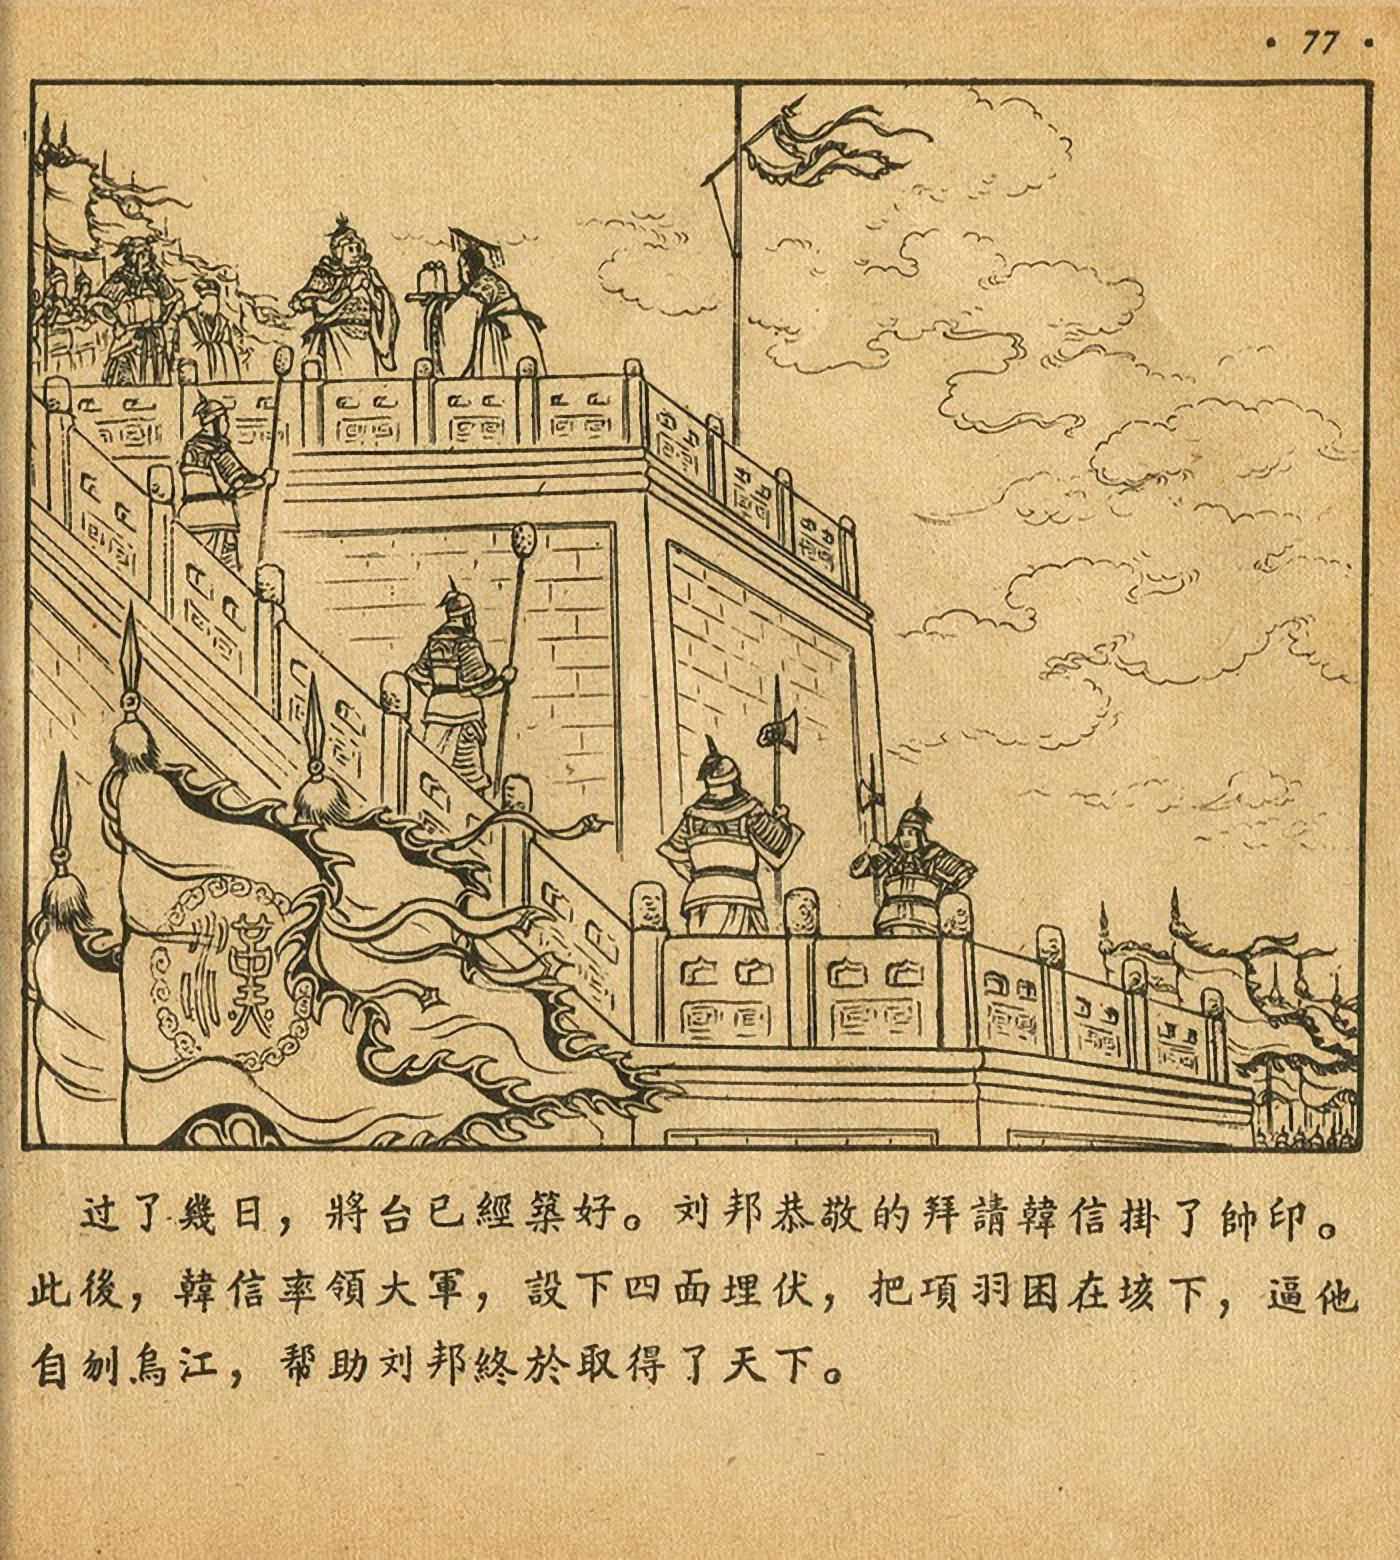 · 77 ·
漢
过了幾日，將台已經築好。刘邦恭敬的拜請韓信掛了帥印。
此後，韓信率領大軍，設下四面埋伏，把項羽困在垓下，逼他
自刎烏江，帮助刘邦終於取得了天下。